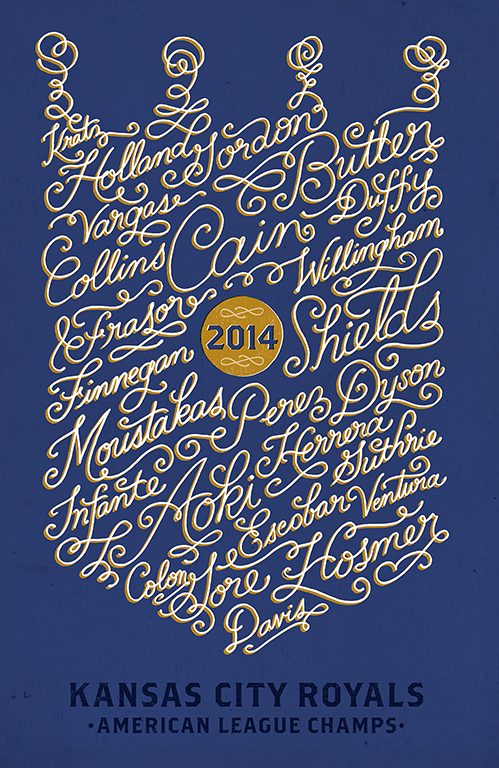 Kratz
Holland Gordon Butler
Vargas Cain Duffy
Collins Willingham
Frasor 2014 Shields
Finnegan
Moustakas Perez Dyson
Infante Aoki Herrera Guthrie
Escobar Ventura
Colon Gore Hosmer
Davis
KANSAS CITY ROYALS
·AMERICAN LEAGUE CHAMPS·